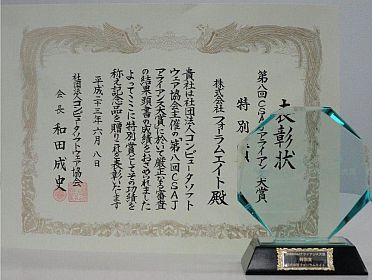 表彰状
第八回CSAJアライアンス大賞
特別
株式会社 フォーラムエイト 殿
貴社は社団法人コンピュータソフト
ウェア協会主催の第八回CSAJ
アライアンス大賞に於いて厳正なる審査
の結果頭書の成績をおさめられました
よってここに特別賞としてその功績を
称え記念品を贈りこれを表彰いたします
平成二十三年六月八日
社団法人コンピュータソフトウェア協会
会長 和田成史